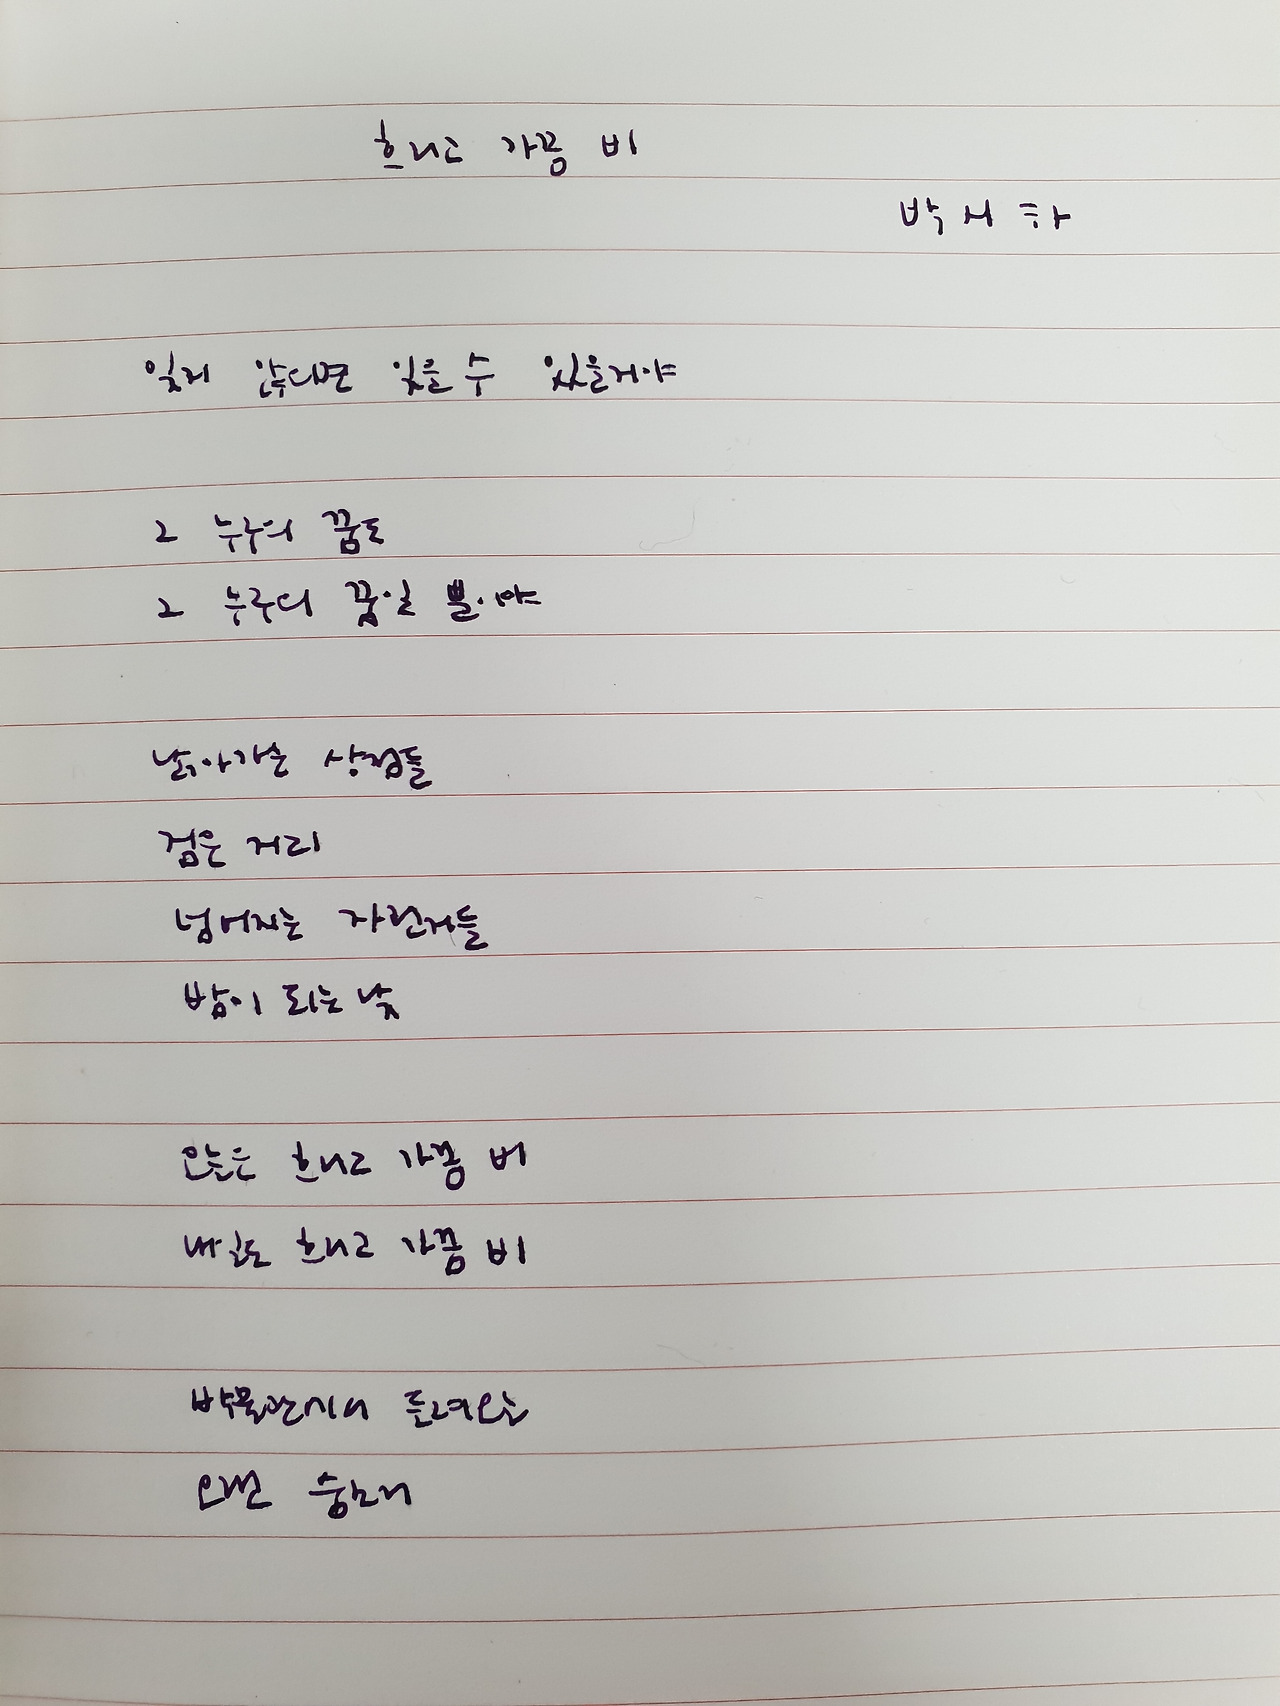 흐리고 가끔 비
박서하
잊지 않다면 잊을 수 있을거야
그 누구의 꿈도
그 누구의 꿈일 뿐이야
낡아가는 상점들
검은 거리
넘어지는 자전거들
밤이 되는 낮
오늘은 흐리고 가끔 비
내일도 흐리고 가끔 비
박물관에서 들려오는
오래된 숨소리